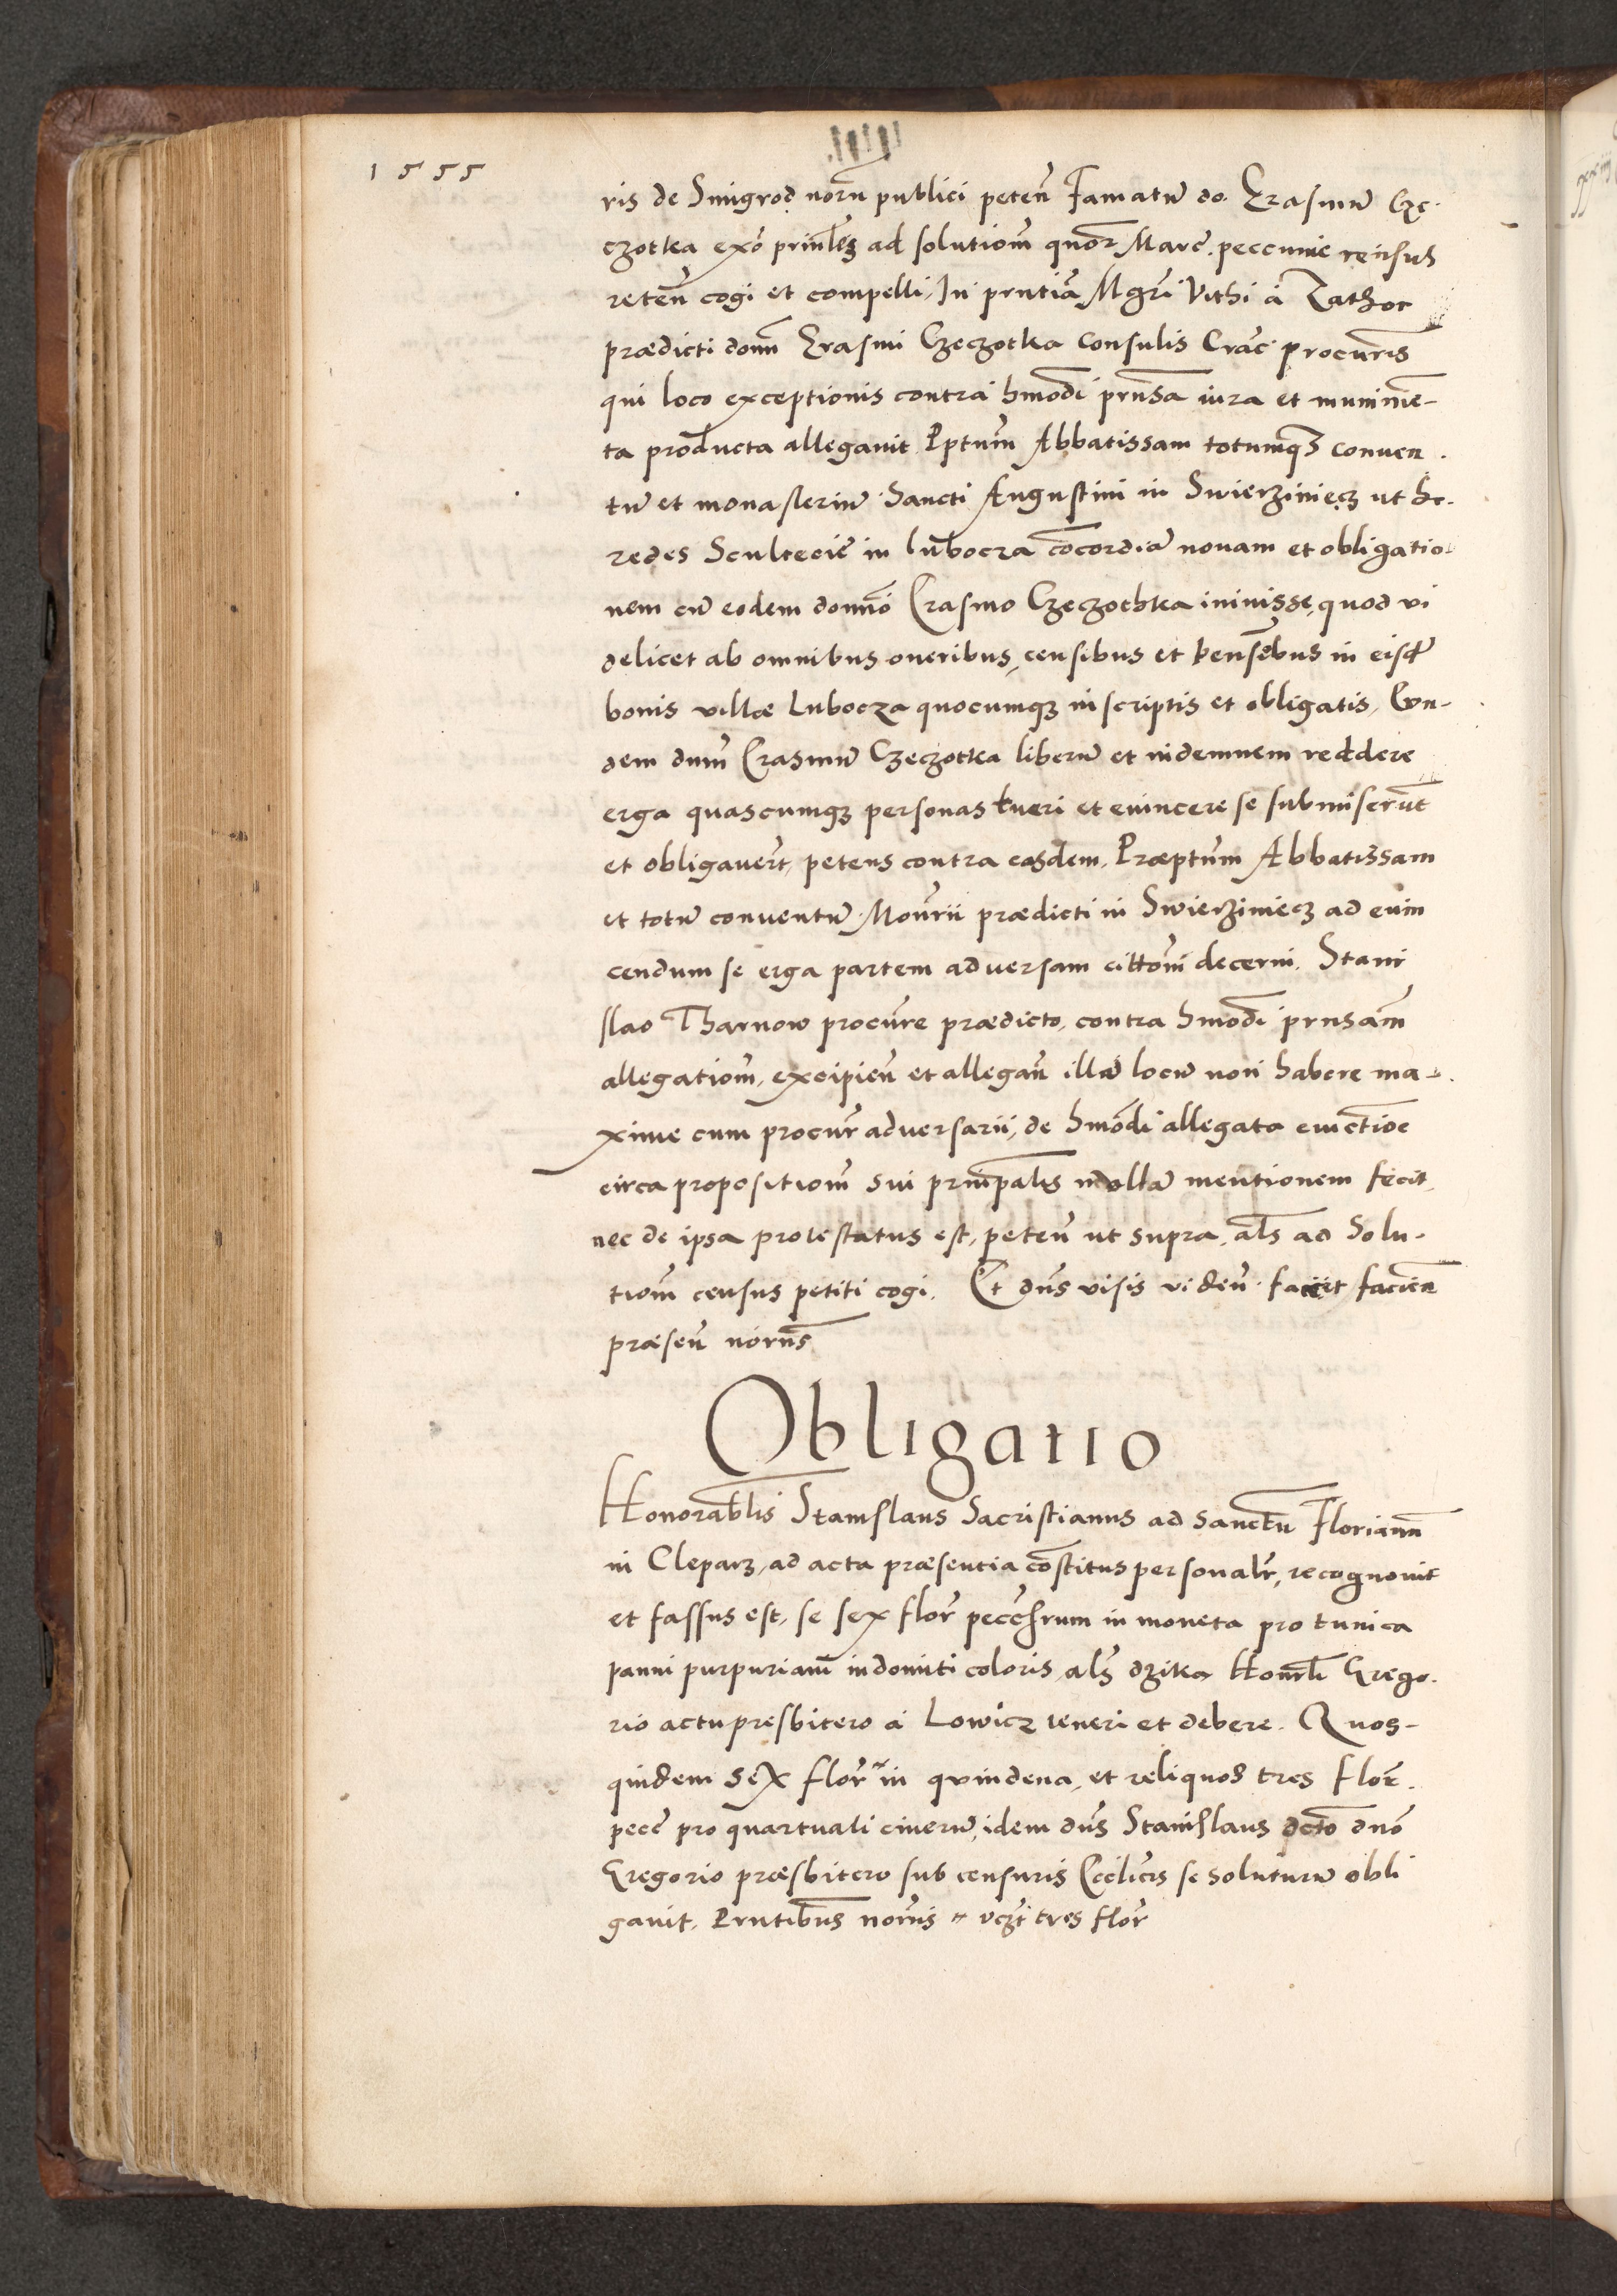 1555
ris de Smigrod norn publici peten Famatu do. Erasmu Cze-
czotka exo prinles ad solutiom quor Marc. peccunie census
reten cogi et compelli, In prntia Mgri Vithi a Zathor
prædicti domi Erasmi Czeczotka Consulis Crac procuris
qui loco exceptionis contra hmodi prnsa iura et munime-
ta producta allegavit Pptum Abbatissam totumqz conven-
tu et monasteriu Sancti Augustini in Swierziniecz ut he-
redes Scultecie in Lubocza concordia novam et obligatio-
nem cu eodem domno Erasmo Czeczothka ininisse, quod vi
delicet ab omnibus oneribus, censibus et pensobus in eisd
bonis villæ Lubocza quocumqz inscriptis et obligatis, Eun-
dem dum Erasmu Czeczotka liberu et indemnem reddere
erga quascumqz personas tueri et evincere se submiserut
et obligavert, petens contra easdem. Præptum Abbatissam
et totu conventu Monrii prædicti in Swierziniecz ad evin
cendum se erga partem adversam cittom decerni. Stani
slao Tharnow procure prædicto, contra hmodi prnsam
allegatiom, excipien et allegan illa locu non habere ma-
xime cum procur adversarii, de hmodi allegata evictioe
circa propositiom sui principalis nulla mentionem fecit,
nec de ipsa protestatus est, peten ut supra, als ad Solu-
tiom census petiti cogi. Et dns visis viden faciet facien
præsen norns
Obligatio
Honorablis Stanislaus Sacristianus ad sanctu Florianu
in Cleparz, ad acta præsentia constitus personalr, recognovit
et fassus est, se sex flor pecchrum in moneta pro tunica
panni purpuriam indomiti coloris, als dzika Honrli Grego-
rio actu presbitero a Lowicz teneri et debere. Quos-
quidem sex flor in quindena, et reliquos tres flor.
pecc pro quartuali cineru, idem dns Stanislaus dcto dno
Gregorio præsbitero sub censuris Ecclicis se soluturu obli
gavit. Prntibus nornis vczt tres flor